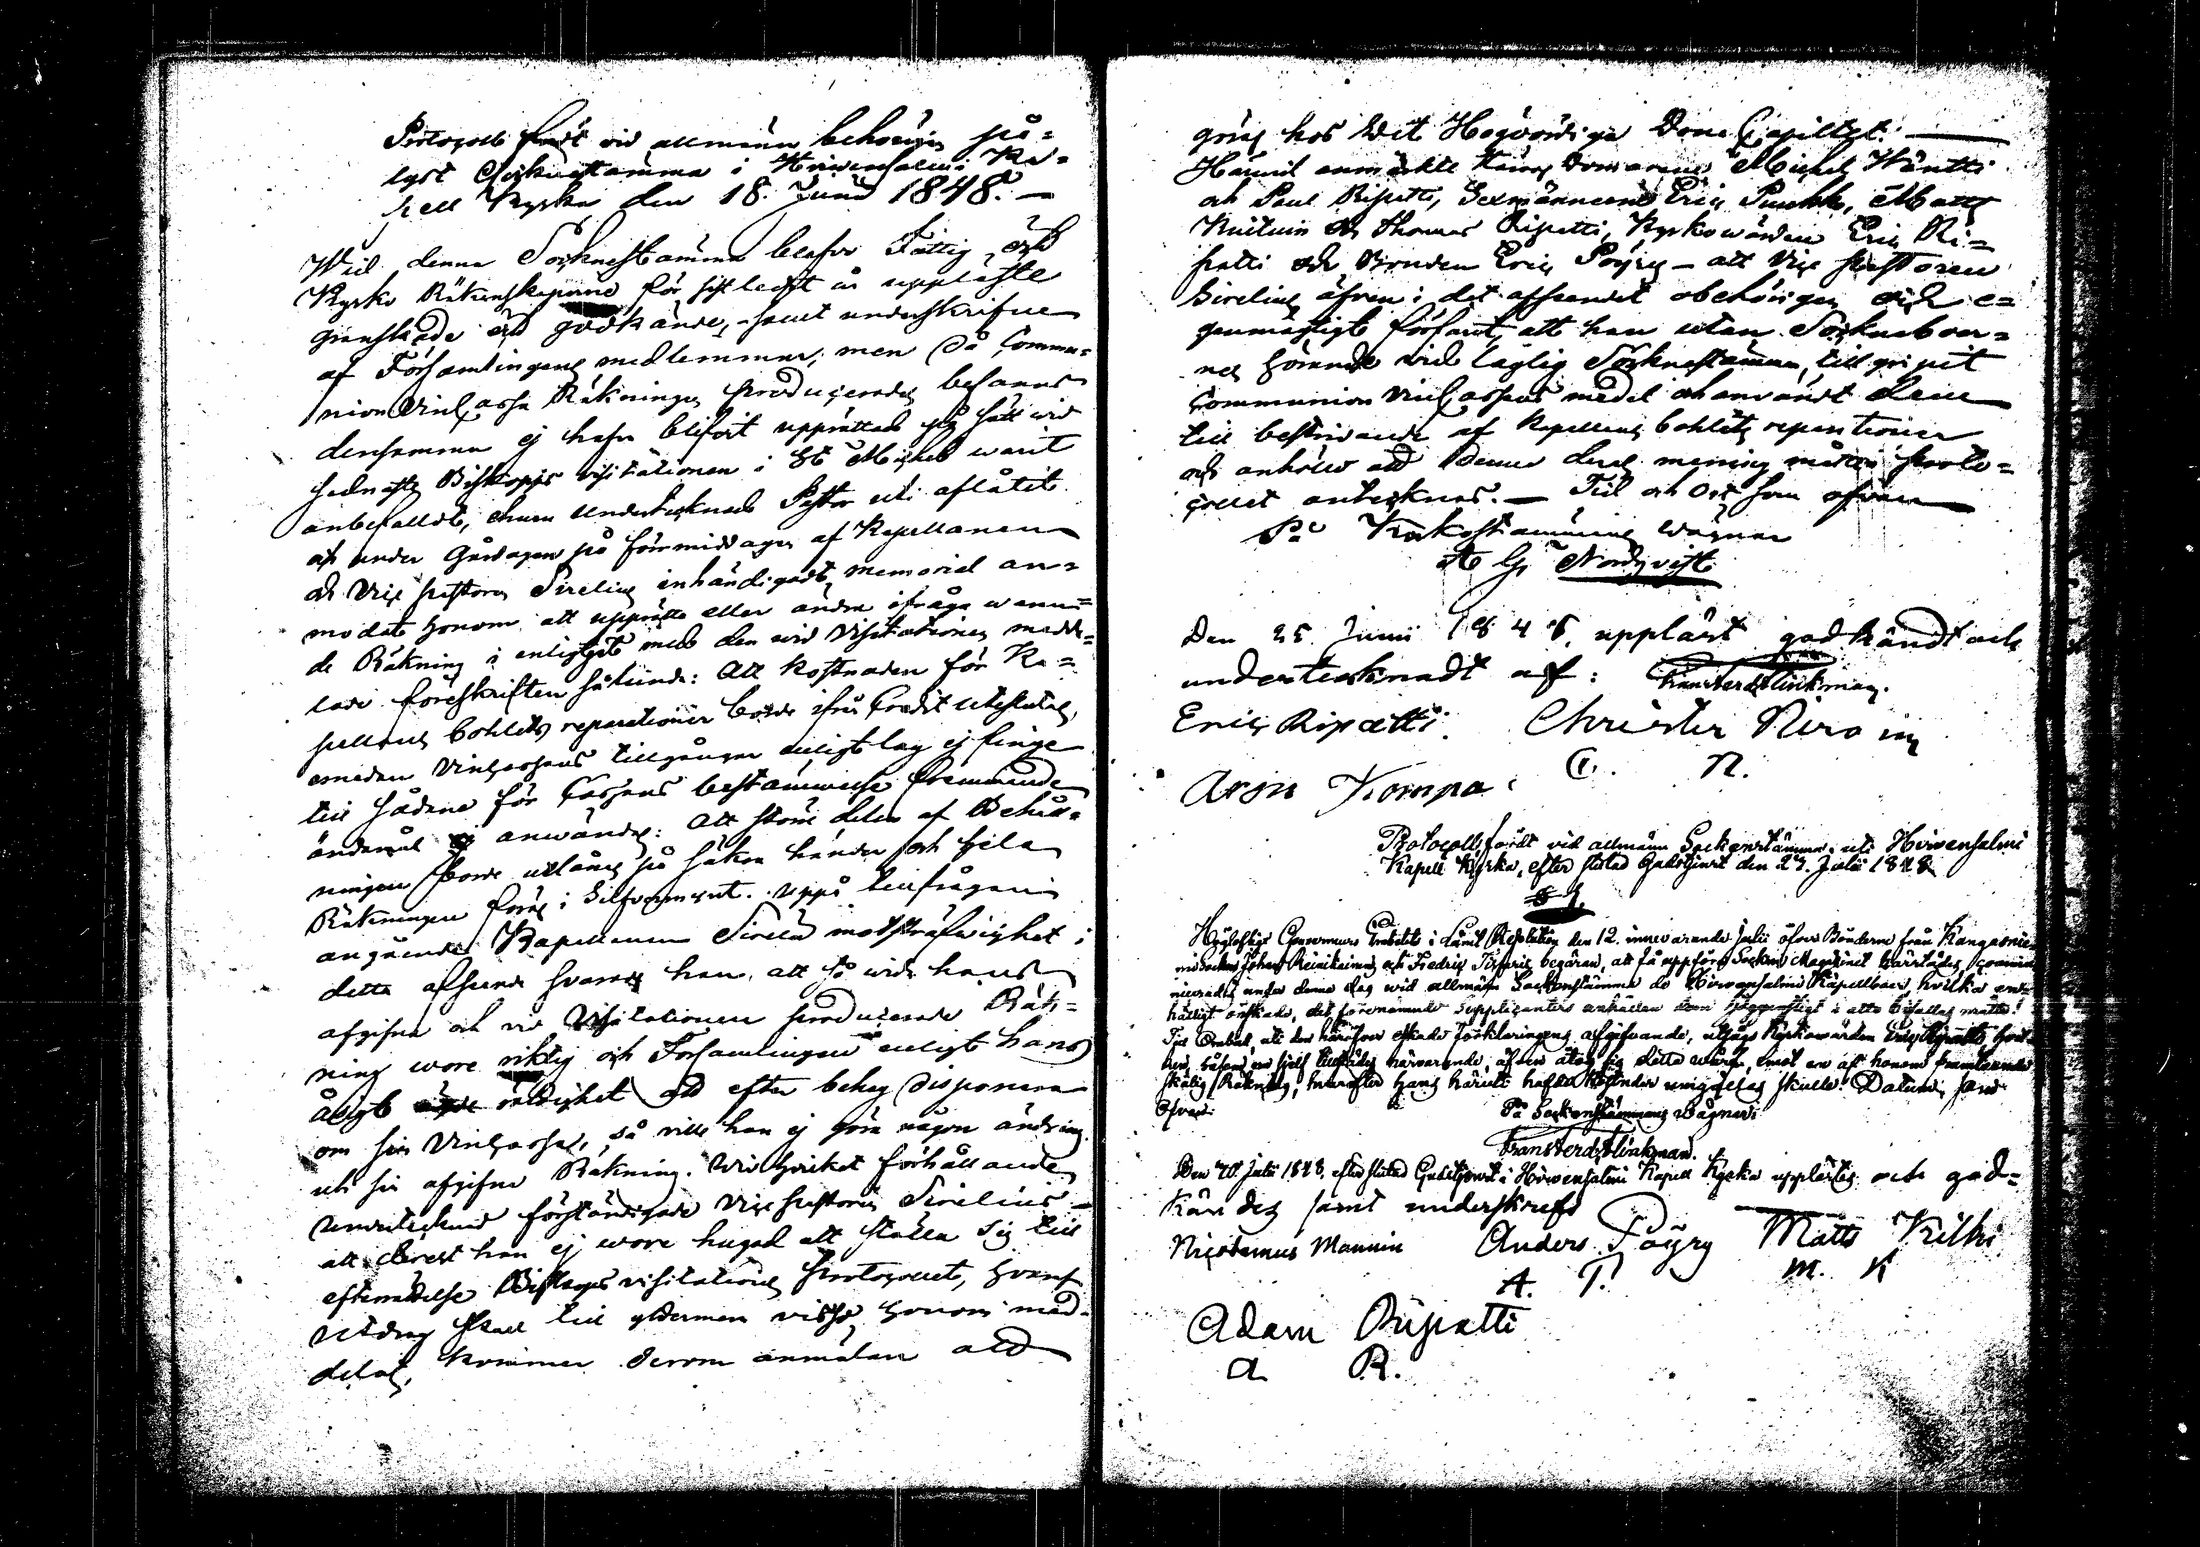 Protocoll fördt vid allmänn behörigen på=
lyst Sockenstämma i Hirvensalmi Ka=
pell Kyrka den 18. Junii 1848. —
Wid denna Sockenstämma blefvo Fattig och
Kyrko Räkenskaperne för sistledit år uppläste
granskade och godkände, samt underskrifne
af Församlingens medlemmar; men då Commu=
nion Vincassa Räkningen producerades befanns
densamma ej hafva blifvit upprättad på sätt vid
sednaste Biskops visitationen i St Michel warit
anbefalldt, hvarå undertecknad Pastor uti aflåtit
och under gårdagen på förmiddagen af Kapellanen
och Vice Pastoren Sirelius inhändigadt memorial an=
modat honom att upprätta eller ändra ifråga waran=
de Räkning i enlighet med den vid Visitationen medde=
lade föreskriften sålunda: Att kostnaden för Ka=
pellans Bohlets reparationer borde ifrån Credit uteslutas,
emedan Vincassans tillgångar enligt lag ej finge
till sådane för Cassans bestämmelse främmande
ändamål anwändas: Att större delen af Behåll=
ningen borde utlånas på säkra händer och hela
Räkningen föras i Silfvermynt. Uppå tillfrågan
angående Kapellanen Sirelii motsträfwighet i
detta afseende svarade han, att så vida hans
afgifne och vid Visitationen producerade Räk=
ning wore riktig och Församlingen enligt hans
åsigt rättighet att efter behag disponera
om sin Vincassa, så ville han ej göra någon ändring
uti sin afgifne Räkning. Vid hvilket förhållande
Undertecknad förständigade Vice Pastoren Sirelius
att derest han ej wore hugad att ställa sig till
efterrättelse Biskops visitations Protocollet, hvaraf
Utdrag skall till ytermera visso honom med=
delas, kommer derom anmälan att
göras hos Det Högvördiga Dom Capitlet. —
Härvid anmärkte Häradsdomarena Michel Häntti
och Paul Ripatti, Sexmännerne Eric Puukko, Matts
och Thomas Ripatti, Kyrkowärden Eric Ri=
patti och Bonden Eric Pöyry — att Vice Pastoren
Sirelius äfven i det afseendet obehörigen och e=
genmägtigt förfarit, att han utan Socknebοer=
nes hörande vid laglig Sockenstämma, tillgripit
Communion Vincassans medel och användt dem
till bestridande af Kapellans Bohlets reparationer
och anhöllo att denna deras mening måtte Proto=
collet antecknas. — Tid och Ort som ofvan
På Kyrkostämmans wägnar
A G Nordqvist
Den 25 Junii 1848, uppläst godkändt och
undertecknadt af: Frans Ferd. Flinkman.
Eric Ripatti. Christer Niro in
C. N.
Aron Komppa
Protocoll, fördt vid allmänn Sockenstämma, uti Hirvensalmi
Kapell Kyrka, efter slutad Gudstjenst den 23. Julii 1848.
§ 1.
Högloflige Gouverneurs Embetet i Länet Resolution den 12. innevarande Julii öfver Bönderne från Kangasnie=
mi Socken Johan Reinikainens och Fredric Tissaris begäran, att få uppföra Socken Magazinet härstädes, commu=
nicerades under denna dag wid allmänn Sockenstämma de Hirvensalmi Kapellboer, hvilka en=
hälligt önskade, det förenämnde Supplicanters anhållan dem höggunstligt i allo bifallas måtte.
Till Ombud, uti den häröfver äskade förklaringens afgifvande, utsågs Kyrkowärden Eric Ripatti, hvil=
ken, såsom sjelf tillstädes närvarande, äfven åtog sig detta wärf, emot en af honom framteende
skälig Räkning, hvarefter hans häruti hafda kostnader ungäldas skulle. Datum, som
ofvan.
På Sockenstämmans Wägnar:
Frans Ferd. Flinkman.
Den 30 Julii 1848, efter slutad Gudstjenst i Hirvensalmi Kapell Kyrka upplästes och god=
kändes samt underskrefs
Nicodemus Mannin Anders Pöyry Matts Kilki
A. P. M. K
Adam Ripatti
A R.